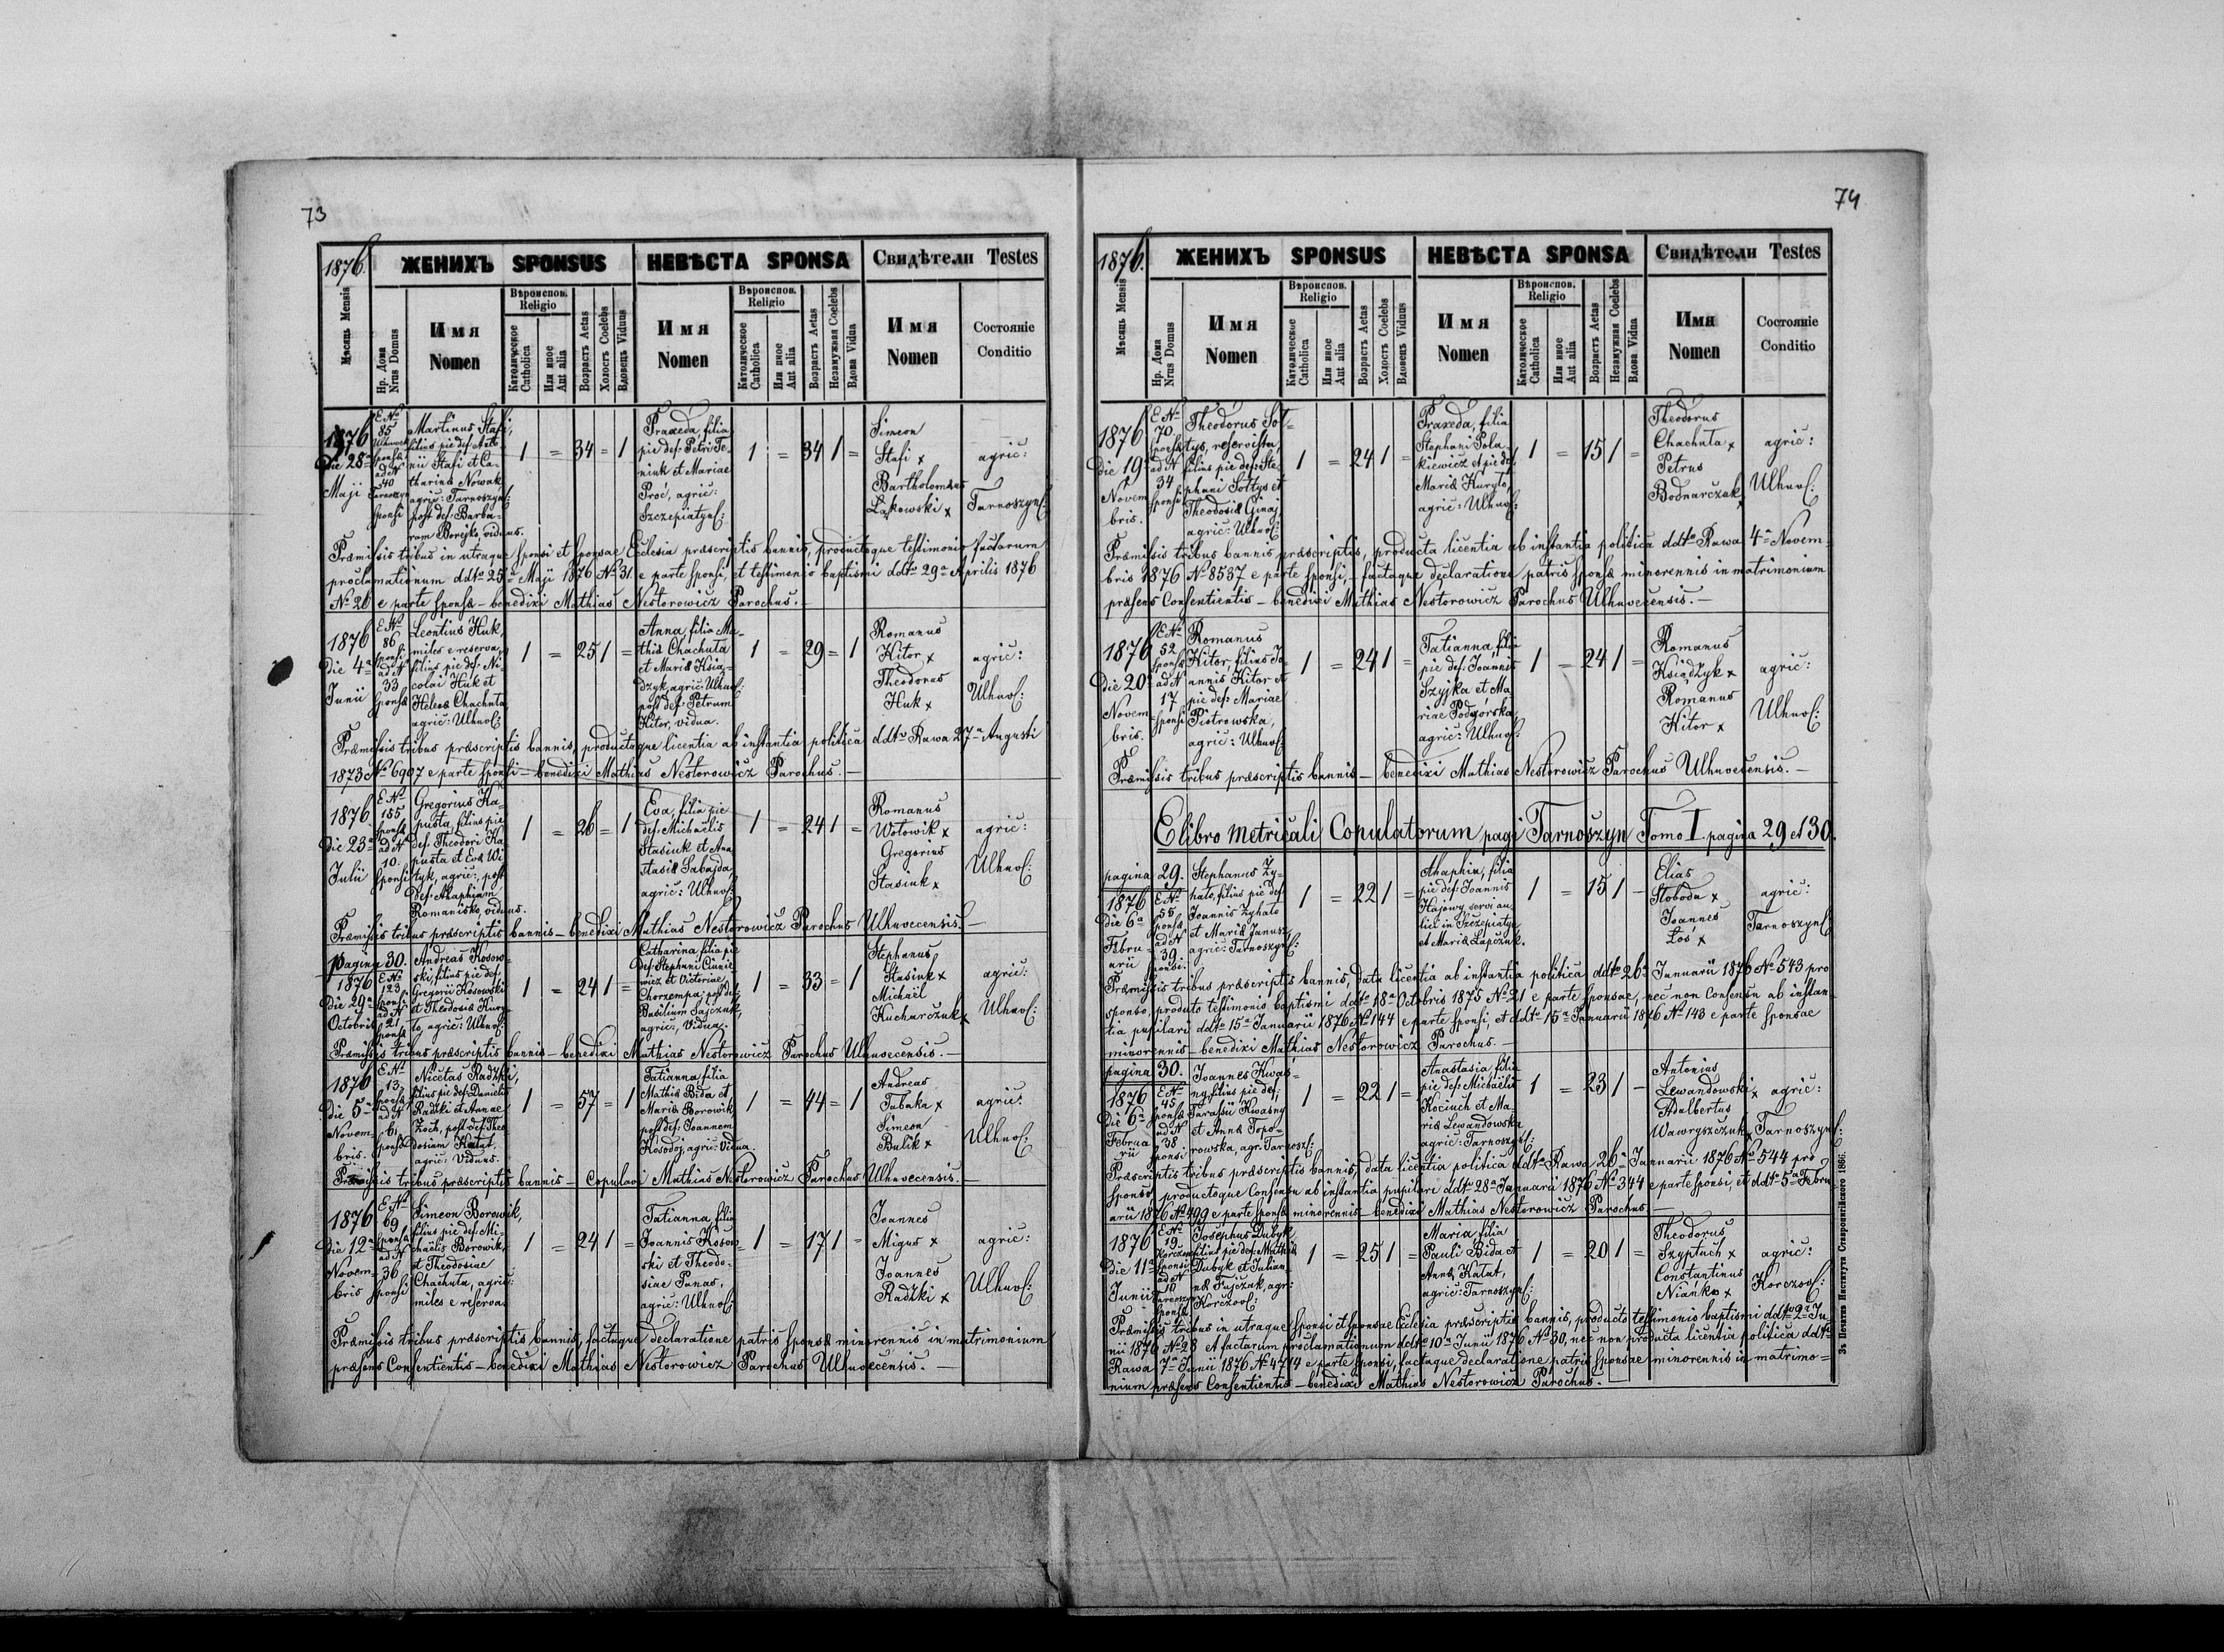 73
1876.
ЖЕНИХЪ SPONSUS
НЕВѢСТА SPONSA
Свидѣтели Testes
Мѣсяць Mensis
Нр. Дома
Nrus Domus
Имя
Nomen
Вѣроиспов.
Religio
Католическое
Catholica
Или иное
Aut alia
Возрастъ Aetas
Холостъ Coelebs
Вдовецъ Viduus
Имя
Nomen
Вѣроиспов.
Religio
Католическое
Catholica
Или иное
Aut alia
Возрастъ Aetas
Незамужная Coelebs
Вдова Vidua
Имя
Nomen
Состояніе
Conditio
1876
Die 28a
Maji
E No
85
sponsae
ad N
40
Tarnoszyn
sponsi
Martinus Stafi,
filius pie def: Anto
nii Stafi et Ca-
tharinae Nowak
agric: Tarnoszyns:
post def: Barba-
ram Borejko, viduus.
1 = 34 = 1
Praxeda, filia
pie def: Petri Te-
niuk et Mariae
Proć, agric:
Szczepiatyns:
1 = 34 1 =
Simeon
Stafi x
Bartholomaeus
Łąkowski x
agric:
Tarnoszyns:
Praemissis tribus in utraque sponsi et sponsae Ecclesia praescriptis bannis, productoque testimonio factarum
proclamationum ddto 25a Maji 1876 No 31 e parte sponsi, et testimonio baptismi ddto 29a Aprilis 1876
No 26 e parte sponsae – benedixi Mathias Nestorowicz Parochus. –
1876
Die 4a
Junii
E No
86
sponsi
ad N
33
sponsae
Leontius Huk,
miles e reserva,
filius pie def: Ni-
colai Huk et
Helenae Chachuta
agric: Uhnos:
1 = 25 1 =
Anna, filia Ma-
thiae Chachuta
et Mariae Ksią-
dzyk, agric: Ulhnos:
post def: Petrum
Kitor, vidua.
1 = 29 = 1
Romanus
Kitor x
Theodorus
Huk x
agric:
Ulhnos:
Praemissis tribus praescriptis bannis, productaque licentia ab instantia politica ddto Rawa 27a Augusti
1873 No 6907 e parte sponsi – benedixi Mathias Nestorowicz Parochus. –
1876
Die 23a
Julii
E No
155
sponsae
ad N
10.
sponsi
Gregorius Ka-
pusta, filius pie
def: Theodori Ka
pusta et Evae Wi
tyk, agric:, post
def: Ahaphiam
Romanisko, viduus.
1 = 26 = 1
Eva, filia pie
def: Michaëlis
Stasiuk et Ana
stasiae Sabajda,
agric: Ulhnos:
1 = 24 1 =
Romanus
Wołowik x
Gregorius
Stasiuk x
agric:
Ulhnos:
Praemissis tribus praescriptis bannis – benedixi Mathias Nestorowicz Parochus Ulhuvecensis. –
pagina 30.
1876
Die 29a
Octobris
E No
123
sponsi
ad N
21
sponsae
Andreas Kosow-
ski, filius pie def.
Gregorii Kosowski
et Theodosiae Kury-
ło, agric: Ulhnos:
1 = 24 1 =
Catharina, filia pie
def: Stephani Ciunie
wicz et Victoriae
Chorzempa, post def:
Basilium Sajczuk,
agric:, Vidua.
1 = 33 = 1
Stephanus
Stasiuk x
Michaël
Kucharczuk x
agric:
Ulhnos:
Praemissis tribus praescriptis bannis – benedixi Mathias Nestorowicz Parochus Ulhuvecensis. –
1876
Die 5a
Novem-
bris.
E No
13
sponsi
ad N
61
sponsae
Nicetas Radzki,
filius pie def: Danielis
Radzki et Annae
Zoch, post def: Theo
dosiam Katat,
agric: Viduus.
1 = 57 = 1
Tatianna, filia
Mathiae Bida et
Mariae Borowik
post def: Joannem
Kosodoj, agric: Vidua.
1 = 44 = 1
Andreas
Tabaka x
Simeon
Bulik x
agric:
Ulhnos:
Praemissis tribus praescriptis bannis – Copulavi Mathias Nestorowicz Parochus Ulhuvecensis. –
1876
Die 12a
Novem-
bris
E No
69
sponsae
ad N
36
sponsi
Simeon Borowik,
filius pie def: Mi-
chaëlis Borowik,
et Theodosiae
Chachuta, agric:
miles e reserva
1 = 24 1 =
Tatianna, filia
Joannis Kosow-
ski et Theodo-
siae Panas,
agric: Ulhnos:
1 = 17 1 =
Joannes
Migus x
Joannes
Radzki x
agric:
Ulhnos:
Praemissis tribus praescriptis bannis, factaque declaratione patris sponsae minorennis in matrimonium
praesens Consentientis – benedixi Mathias Nestorowicz Parochus Ulhuvecensis. –
74
1876.
ЖЕНИХЪ SPONSUS
НЕВѢСТА SPONSA
Свидѣтели Testes
Мѣсяць Mensis
Нр. Дома
Nrus Domus
Имя
Nomen
Вѣроиспов.
Religio
Католическое
Catholica
Или иное
Aut alia
Возрастъ Aetas
Холостъ Coelebs
Вдовецъ Viduus
Имя
Nomen
Вѣроиспов.
Religio
Католическое
Catholica
Или иное
Aut alia
Возрастъ Aetas
Незамужная Coelebs
Вдова Vidua
Имя
Nomen
Состояніе
Conditio
1876
Die 19a
Novem
bris.
E No
70.
sponsae
ad N
34
sponsi
Theodorus Soł-
tys, reservista,
filius pie def: Ste-
phani Sołtys et
Theodosiae Ginaj
agric: Ulhnos:
1 = 24 1 =
Praxeda, filia
Stephani Pola-
kiewicz et pie def.
Mariae Kuryło,
agric: Ulhnos:
1 = 15 1 =
Theodorus
Chachuta x
Petrus
Bodnarczuk x
agric:
Ulhnos:
Praemissis tribus bannis praescriptis, producta licentia ab instantia politica ddto Rawa 4a Novem-
bris 1876 No 8537 e parte sponsi, – factaque declaratione patris sponsae minorennis in matrimonium
praesens Consentientis – benedixi Mathias Nestorowicz Parochus Ulhuvecensis. –
1876
Die 20a
Novem
bris.
E No
52
sponsae
ad N
17
sponsi
Romanus
Kitor, filius Jo-
annis Kitor et
pie def: Mariae
Piotrowska,
agric: Ulhnos:
1 = 24 1 =
Tatianna, filia
pie def: Joannis
Szyjka et Ma
riae Podgórska,
agric: Ulhnos:
1 = 24 1 =
Romanus
Książyk x
Romanus
Kitor x
agric:
Ulhnos:
Praemissis tribus praescriptis bannis – benedixi Mathias Nestorowicz Parochus Ulhuvecensis. –
E libro metricali Copulatorum pagi Tarnoszyn Tomo I pagina 29 et 30.
pagina 29.
1876
Die 6a
Febru
arii
E No
55
sponsae
ad N
39
sponsi.
Stephanus Zy-
hało, filius pie def
Joannis Zyhało
et Mariae Janusz,
agric: Tarnoszyns:
1 = 22 1 =
Ahaphia, filia
pie def: Joannis
Hajowy servi au
lici in Szczepiatyn
et Mariae Łapczuk.
1 = 15 1 –
Elias
Słoboda x
Joannes
Łoś x
agric:
Tarnoszyns:
Praemissis tribus praescriptis bannis, data licentia ab instantia politica ddto 26a Januarii 1876 No 543 pro
sponso, produto testimonio baptismi ddto 18a Octobris 1875 No 21 e parte sponsae, nec non Consensu ab instan-
tia pupilari ddto 15a Januarii 1876 No 144 e parte sponsi, et ddto 15a Januarii 1876 No 143 e parte sponsae
minorennis – benedixi Mathias Nestorowicz Parochus. –
pagina 30.
1876
Die 6a
Februa
rii
E No
45
sponsae
ad N
38
sponsi
Joannes Kwaś-
ny, filius pie def:
Tarassii Kwasny
et Annae Topo-
rowska, agr: Tarnosz:
1 = 22 1 =
Anastasia, filia
pie def: Michaëlis
Kociuch et Ma-
riae Lewandowska
agric: Tarnoszyns:
1 = 23 1 –
Antonius
Lewandowski x
Adalbertus
Wawryszczuk x
agric:
Tarnoszyns:
Praescriptis tribus praescriptis bannis, data licentia politica ddto Rawa 26a Januarii 1876 No 544 pro
sponso, productoque Consensu ab instantia pupilari ddto 28a Januarii 1876 No 344 e parte sponsi, et ddto 5a Febru
arii 1876 No 499 e parte sponsae minorennis – benedixi Mathias Nestorowicz Parochus –
1876
Die 11a
Junii
E No
19
Korczow
sponsi
ad N
10
Tarnoszyn
sponsae
Josephus Dubyk,
filius pie def: Mathiae
Dubyk et Julian
nae Fujczak, agr:
Korczovs:
1 = 25 1 =
Maria, filia
Pauli Bida et
Annae Katat,
agric: Tarnoszyns:
1 = 20 1 =
Theodorus
Szyptuch x
Constantinus
Nianko x
agric:
Korczovs:
Praemissis tribus in utraque sponsi et sponsae Ecclesia praescriptis bannis, producto testimonio baptismi ddto 2a Ju-
nii 1876 No 23 et factarum proclamationum ddto 10a Junii 1876 No 30, nec non producta licentia politica ddto
Rawa 7a Junii 1876 No 4714 e parte sponsi, factaque declaratione patris sponsae minorennis in matrimo-
nium praesens Consentientis – benedixi Mathias Nestorowicz Parochus.
Зъ Печатни Института Ставропигійского 1866.